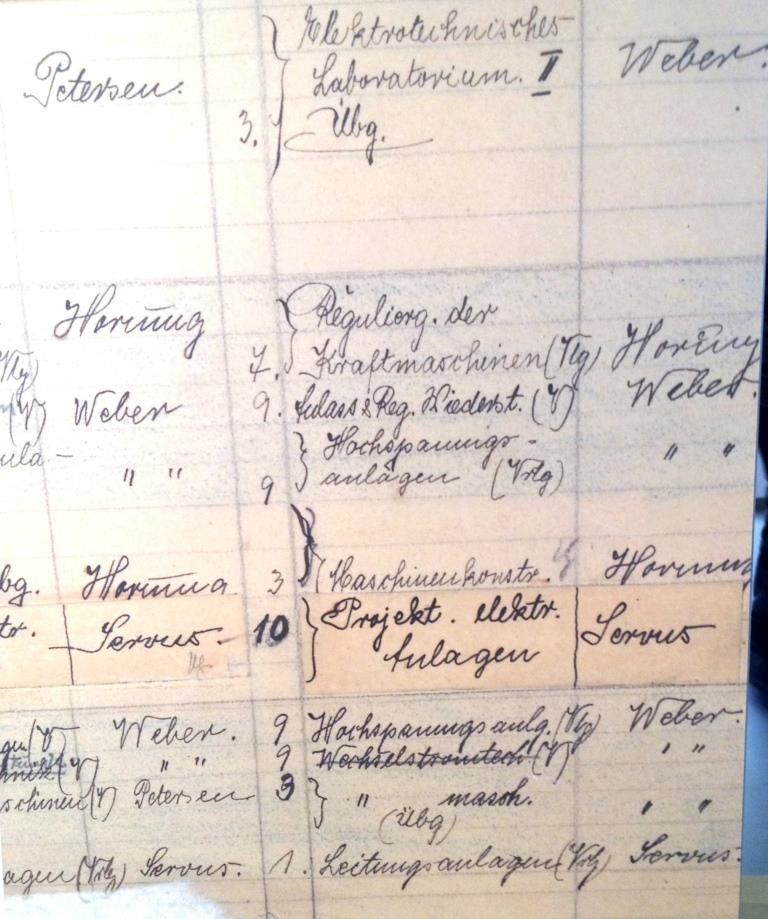 Elektrotechnisches
Petersen. Laboratorium. II Weber.
3. Übg.
Hornung Regulierg. der
7. Kraftmaschinen (Vlg) Hornung
(V) Weber 9. Anlass & Reg. Wiederst. (V) Weber.
Hochspannungs-
ula- " " 9 anlagen (Vrlg) " "
bg. Hornung 3 Maschinenkonstr. Hornung
tr. Servus. 10 Projekt. elektr. Servus
Anlagen
gen (V) Weber. 9 Hochspanungsanlg. (Vlg) Weber.
(V) " " 9 Wechselstromtech. (V) " "
schinen (V) Petersen 3 " masch. " "
(Übg)
agen (Vrlg) Servus. 1. Leitungsanlagen (Vrlg) Servus.